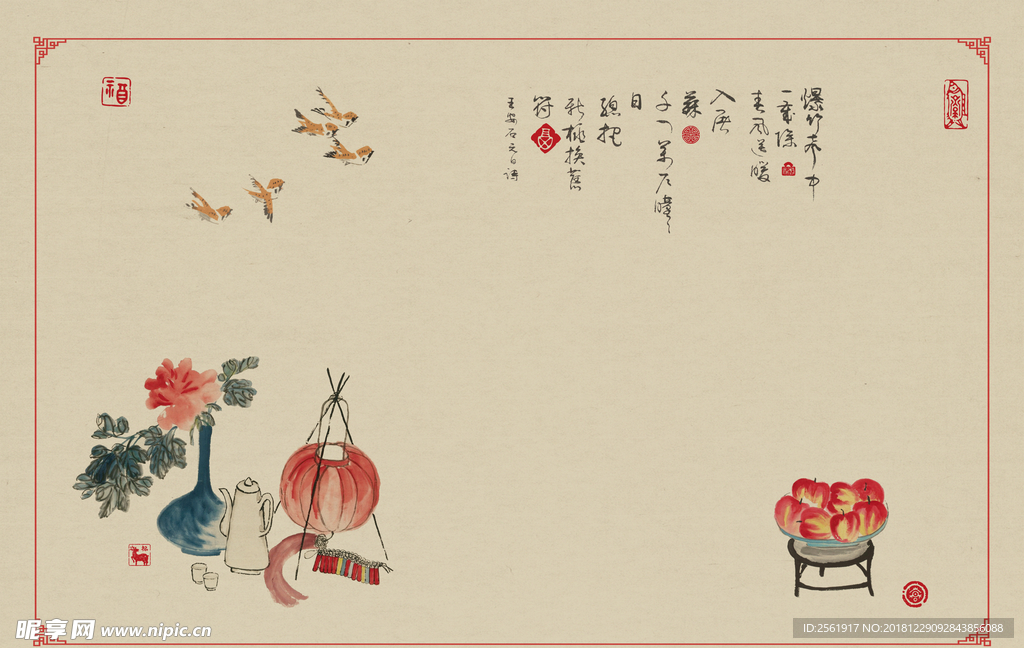 爆竹声中
一岁除
春风送暖
入屠
蘇
千门万户曈々
日
總把
新桃换舊
符
王安石元日詩
福
昵享网 www.nipic.cn
ID:2561917 NO:20181229092843856088